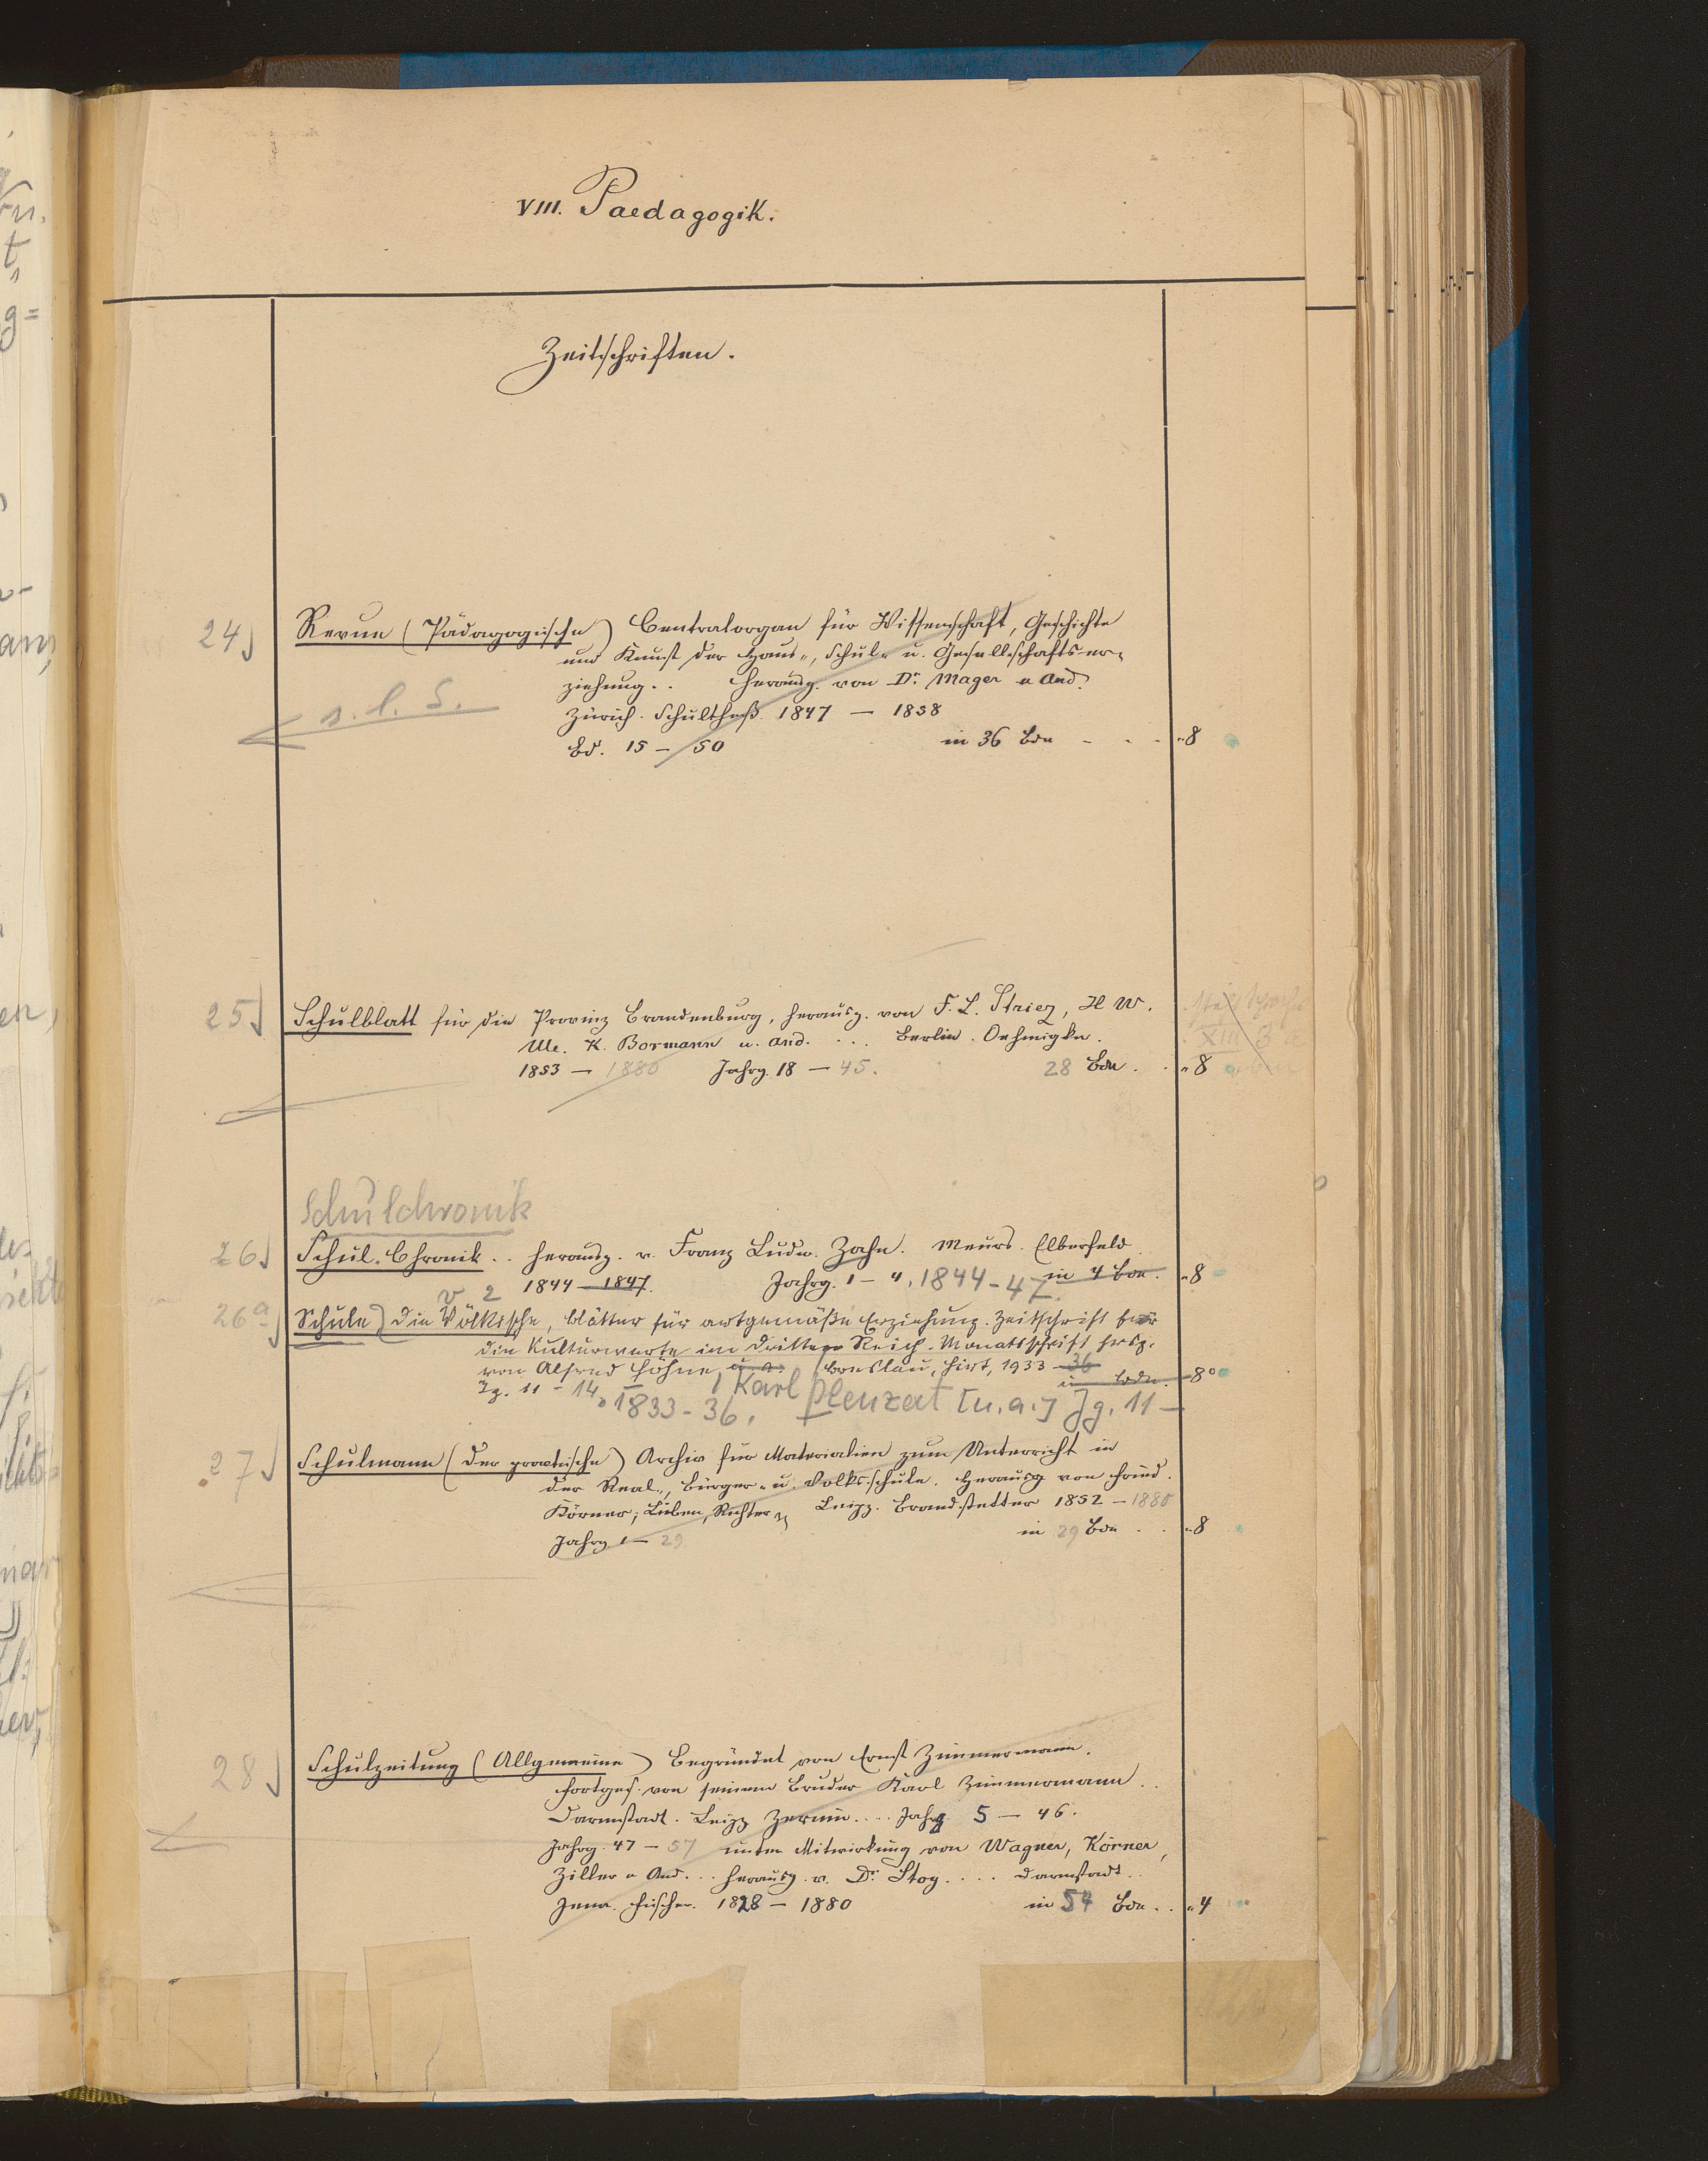 VIII. Paedagogik.
Zeitschriften.
24) Revue (Pädagogische) Centralorgan für Wissenschaft, Geschichte
und Kunst der Haus-, Schul- u. Gesellschafts-er-
ziehung.. Herausg. von Dr. Mager u And.
s. l. S.
Zürich. Schultheß. 1847 — 1858
Bd. 15 — 50 in 36 Bdn - - - „8
25) Schulblatt für die Provinz Brandenburg, herausg. von F. L. Striez, H W.
Ule. K. Bormann u. And. ... Berlin. Oehmigke.
1853 — 1880 Jahrg. 18 — 45. 28 Bdn. . „8
XIII 3 a
Schulchronik
26) Schul-Chronik .. herausg. v. Franz Ludw. Zahn. Meurs. Elberfeld.
1844 — 1847. Jahrg. 1 — 4, 1844-47. in 4 Bdn. „8
v 2
26a) Schule) die Völkische, Blätter für artgemäße Erziehung. Zeitschrift für
die Kulturwerte im Dritten Reich. Monatsschrift hrsg.
von Alfred Höhne, u. a. Breslau, Hirt, 1933-36
Jg. 11-14, in Bdn. 8°
1833-36. Karl Plenzat [u. a.] Jg. 11—
27) Schulmann (Der practische) Archiv für Materialien zum Unterricht in
der Real-, Bürger- u. Volksschule. Herausg von Fried.
Körner; Lüben, Richter Leipz. Brandstetter 1852 — 1880
Jahrg 1 — 29 in 29 Bdn . . „8
28) Schulzeitung (Allgemeine) Begründet von Ernst Zimmermann.
Fortges. von seinem Bruder Karl Zimmermann ..
Darmstadt. Leipz Zernin. ... Jahrg 5 — 46.
Jahrg. 47 — 57 unter Mitwirkung von Wagner, Körner,
Ziller u And... herausg. v. Dr. Stoy .... Darmstadt..
Jena. Fischer. 1828 — 1880 in 54 Bdn. . „4